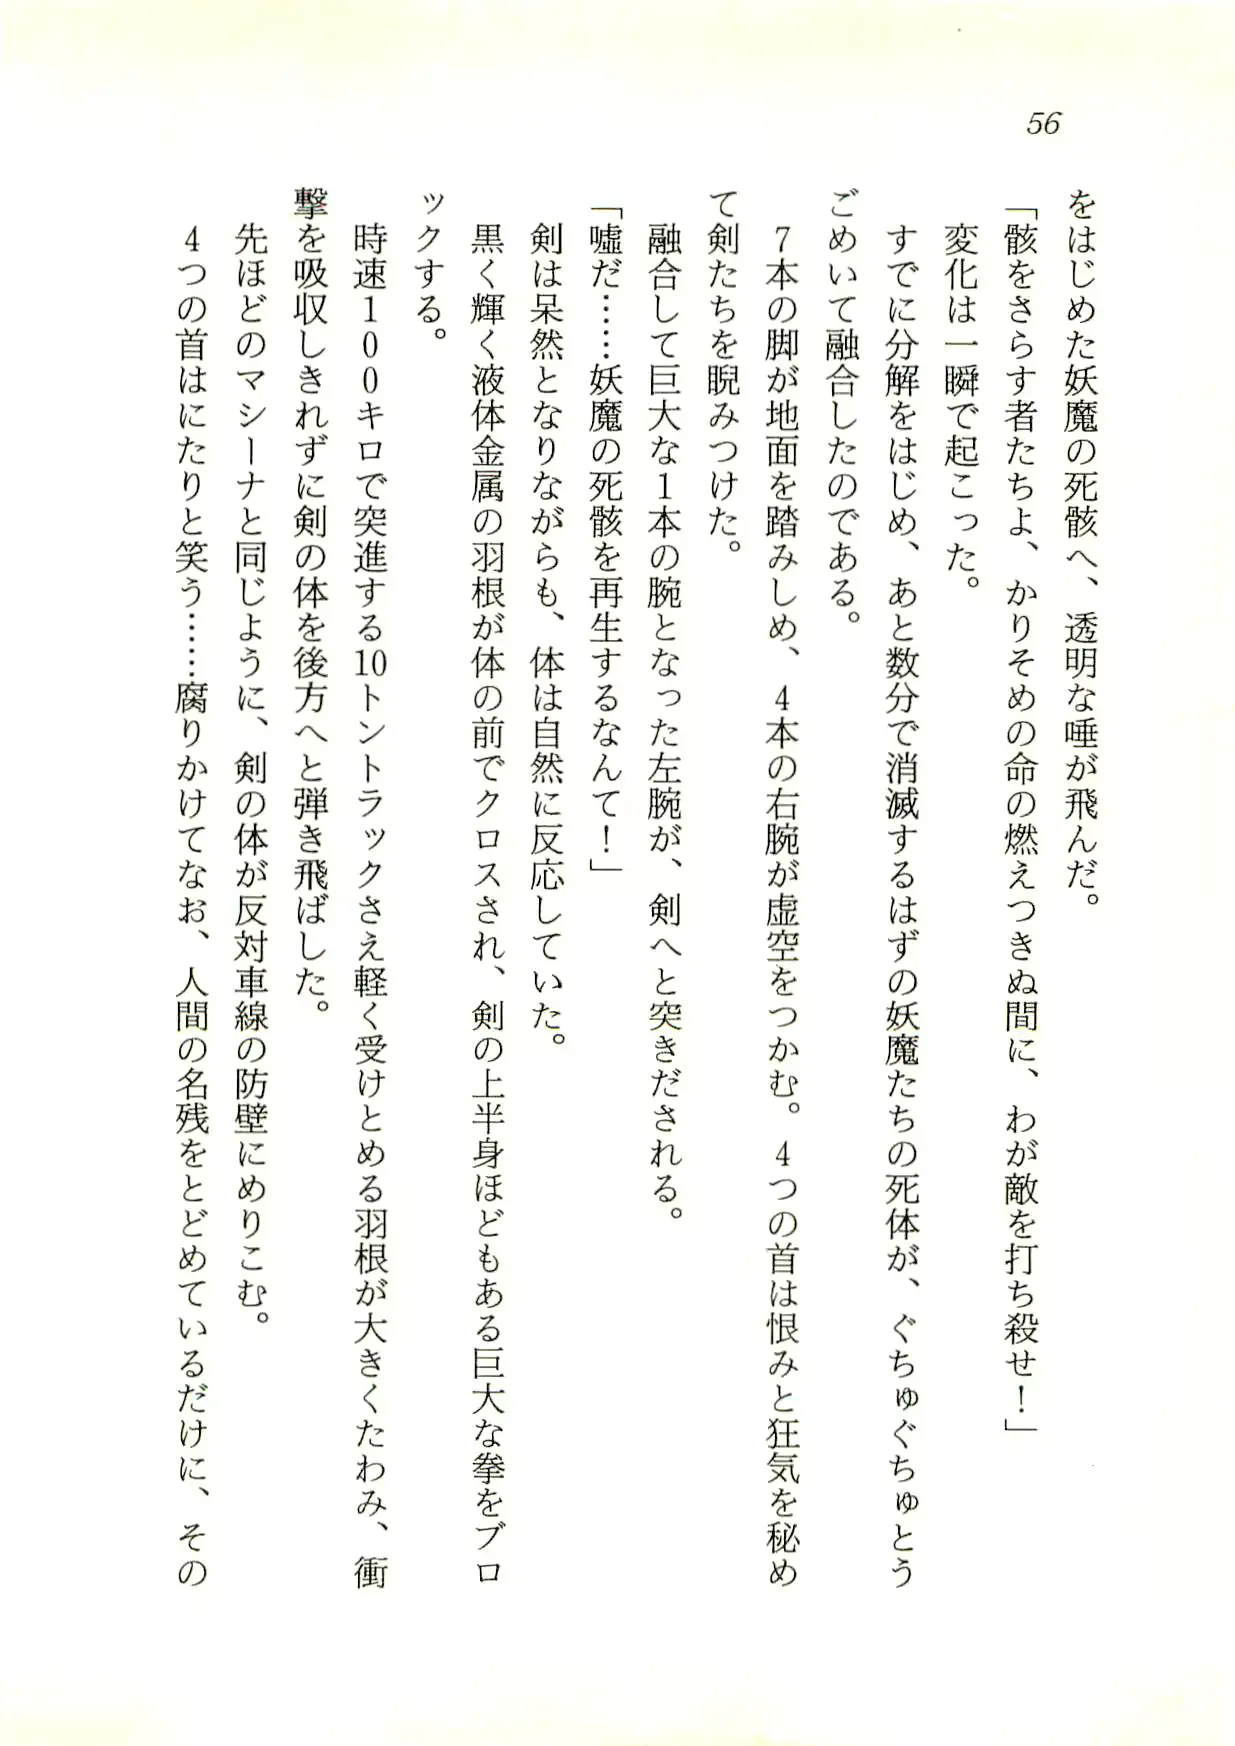 56
をはじめた妖魔の死骸へ、透明な唾が飛んだ。
「骸をさらす者たちよ、かりそめの命の燃えつきぬ間に、わが敵を打ち殺せ！」
変化は一瞬で起こった。
すでに分解をはじめ、あと数分で消滅するはずの妖魔たちの死体が、ぐちゅぐちゅとう
ごめいて融合したのである。
7本の脚が地面を踏みしめ、4本の右腕が虚空をつかむ。4つの首は恨みと狂気を秘め
て剣たちを睨みつけた。
融合して巨大な1本の腕となった左腕が、剣へと突きだされる。
「嘘だ……妖魔の死骸を再生するなんて！」
剣は呆然となりながらも、体は自然に反応していた。
黒く輝く液体金属の羽根が体の前でクロスされ、剣の上半身ほどもある巨大な拳をブロ
ックする。
時速100キロで突進する10トントラックさえ軽く受けとめる羽根が大きくたわみ、衝
撃を吸収しきれずに剣の体を後方へと弾き飛ばした。
先ほどのマシーナと同じように、剣の体が反対車線の防壁にめりこむ。
4つの首はにたりと笑う……腐りかけてなお、人間の名残をとどめているだけに、その